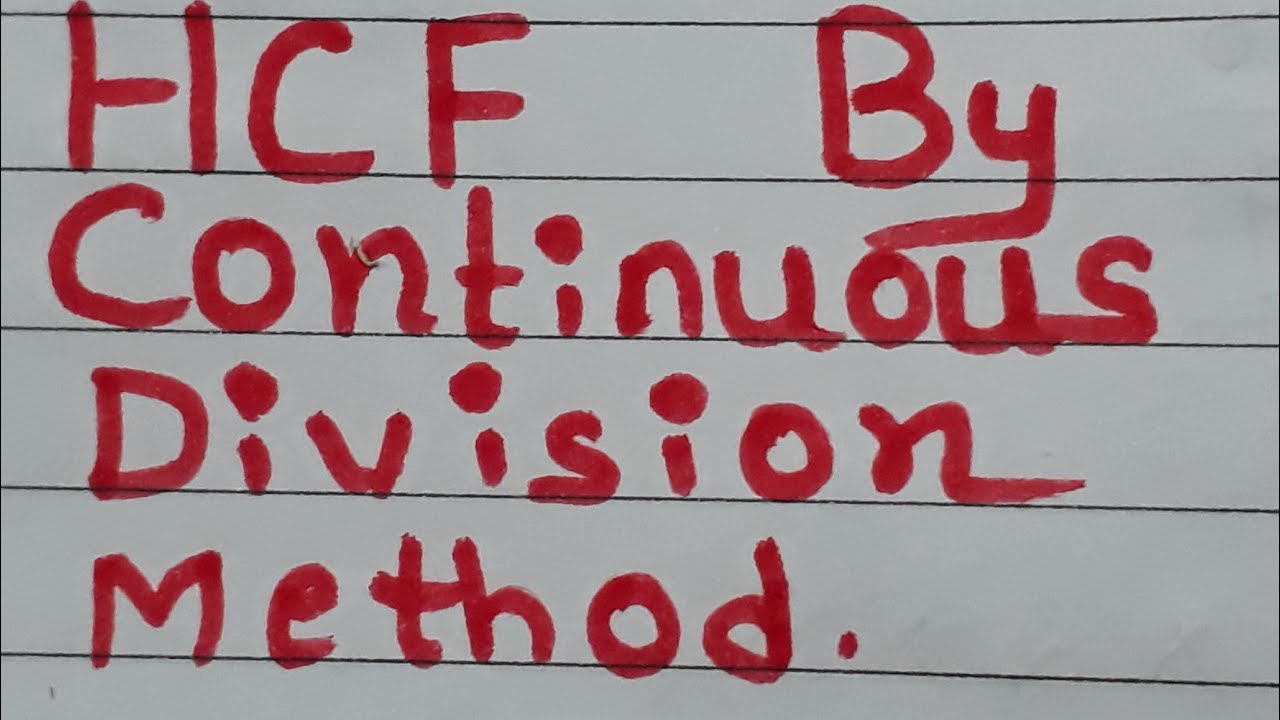 HCF By
Continuous
Division
Method.